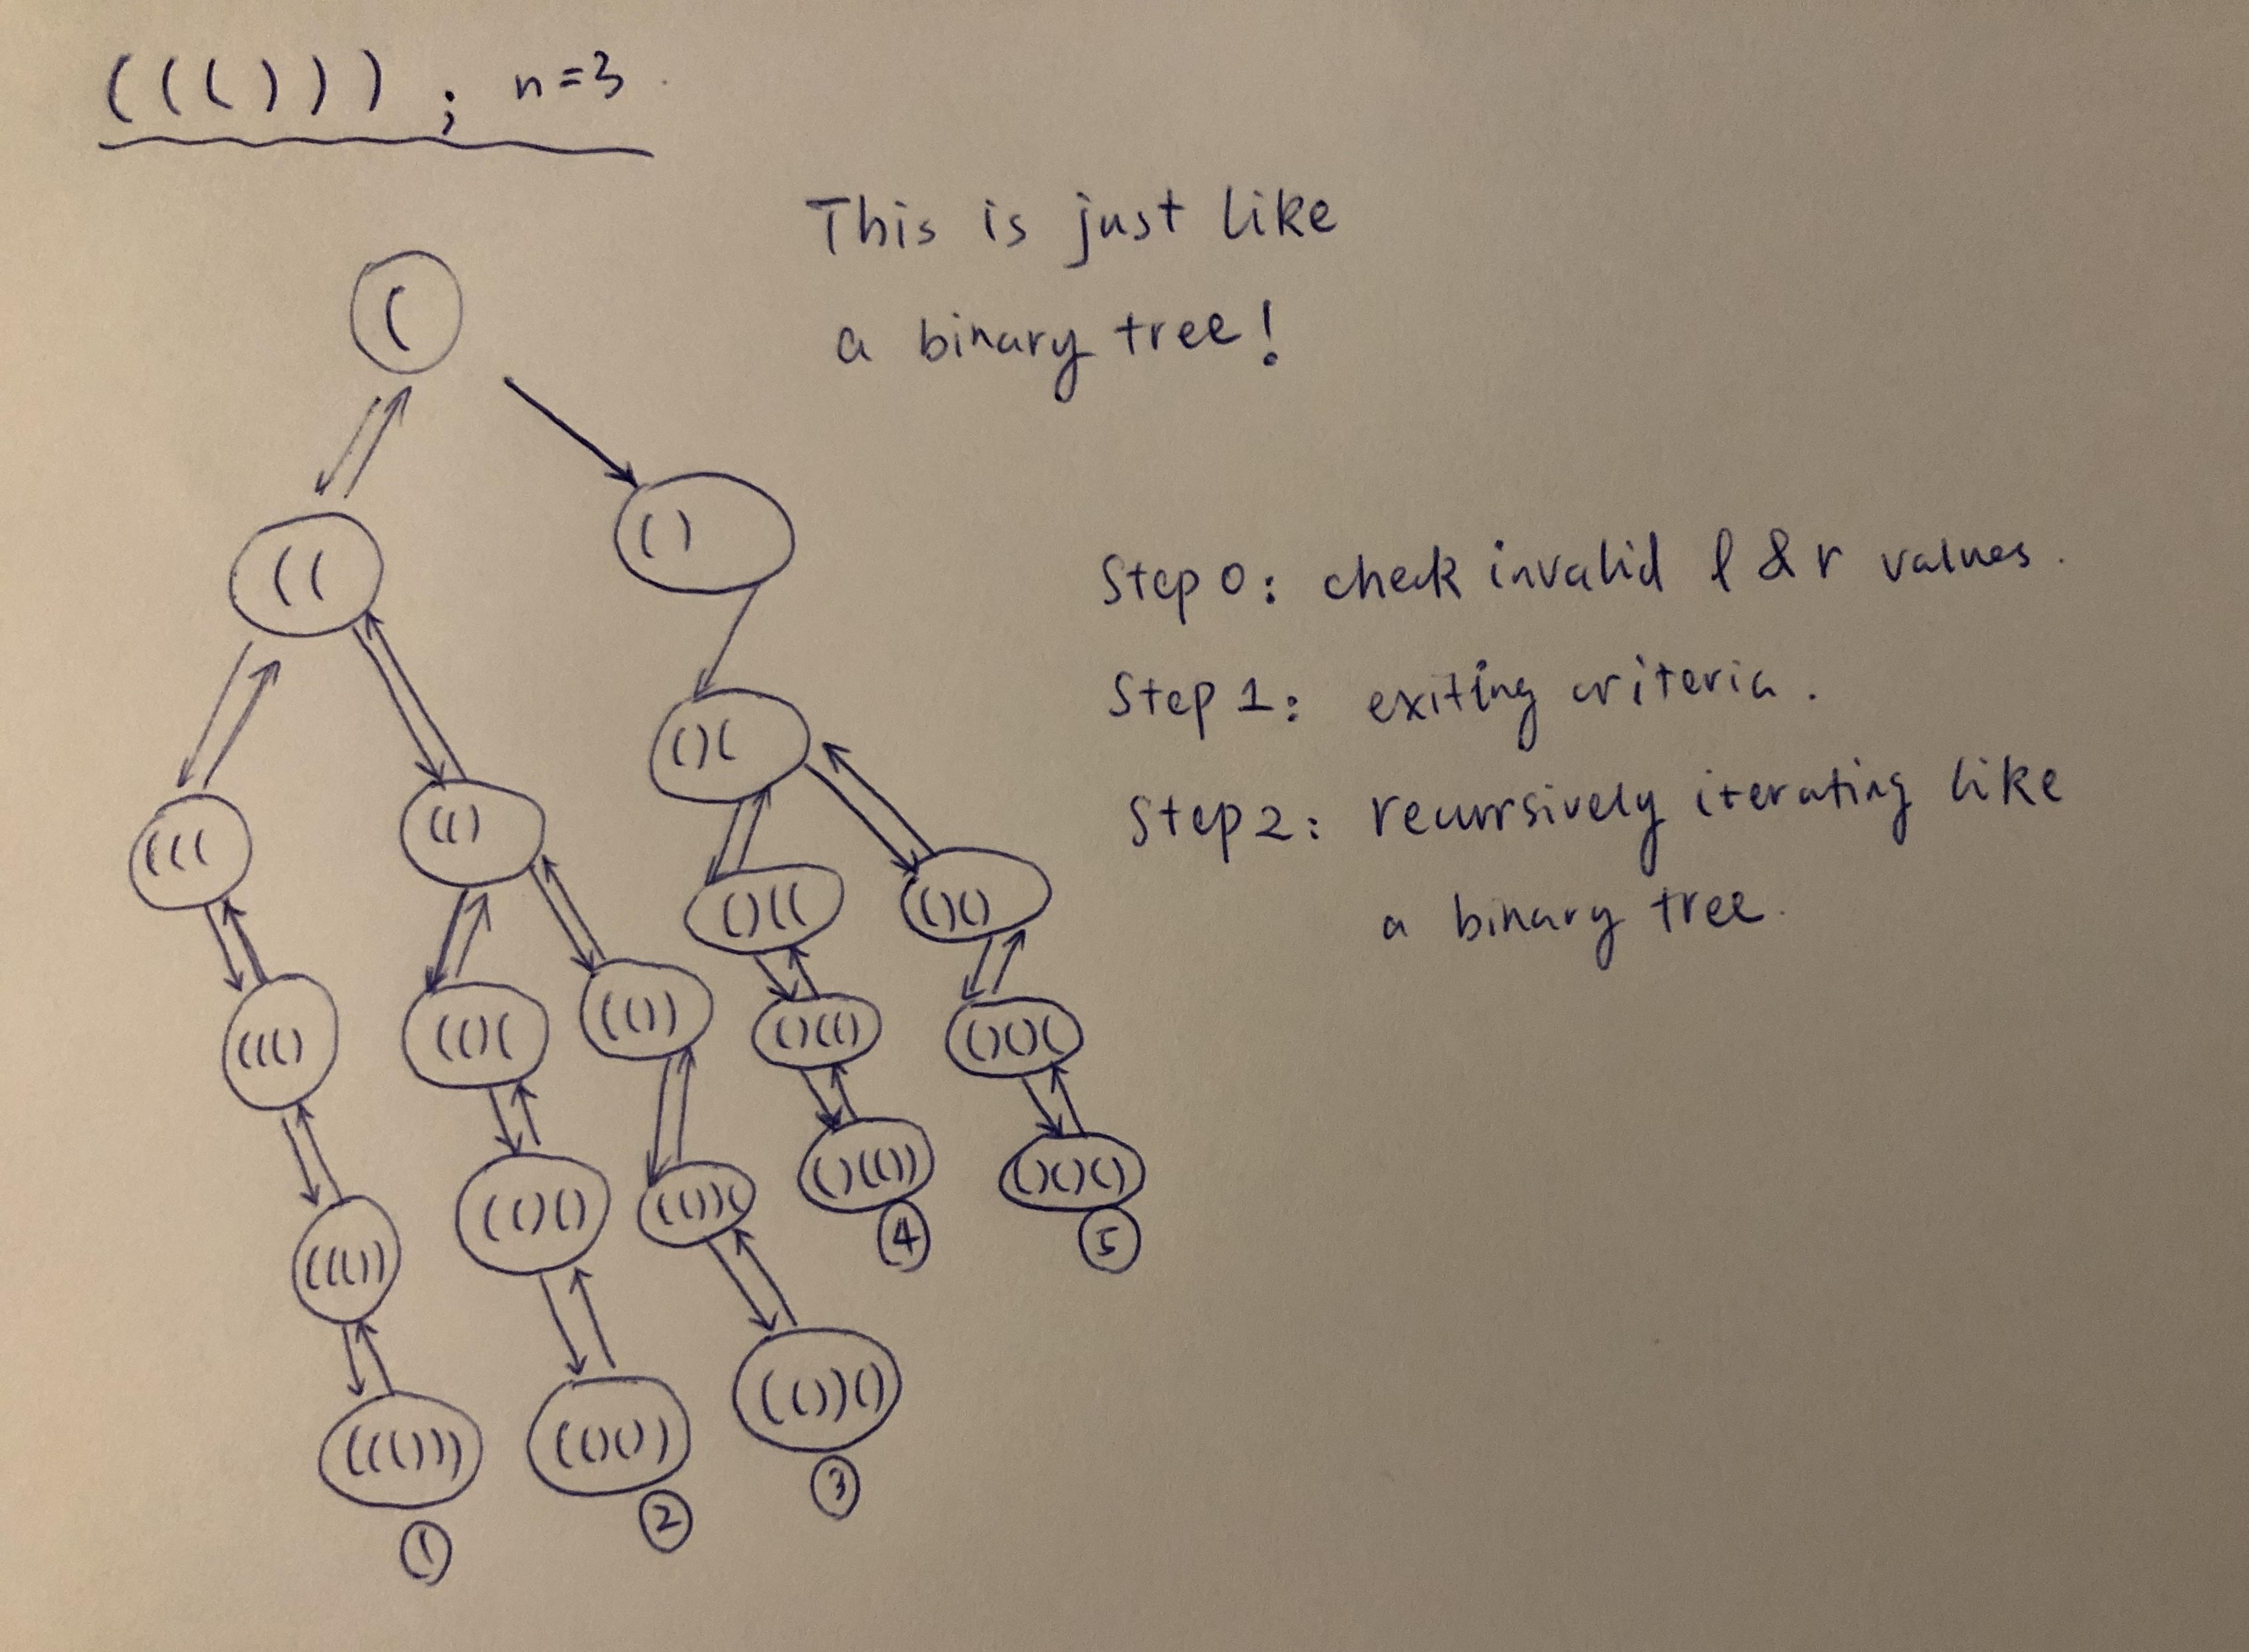 ((())) ; n=3
This is just like
a binary tree!
(
((
()
()(
Step 0: check invalid l & r values.
Step 1: exiting criteria.
Step 2: recurrsively iterating like
a binary tree.
(((
(()
()((
()()
((()
(()(
(())
()(()
()()(
((())
(()()
(())(
()(())
④
()()()
⑤
((()))
①
(()())
②
(())()
③